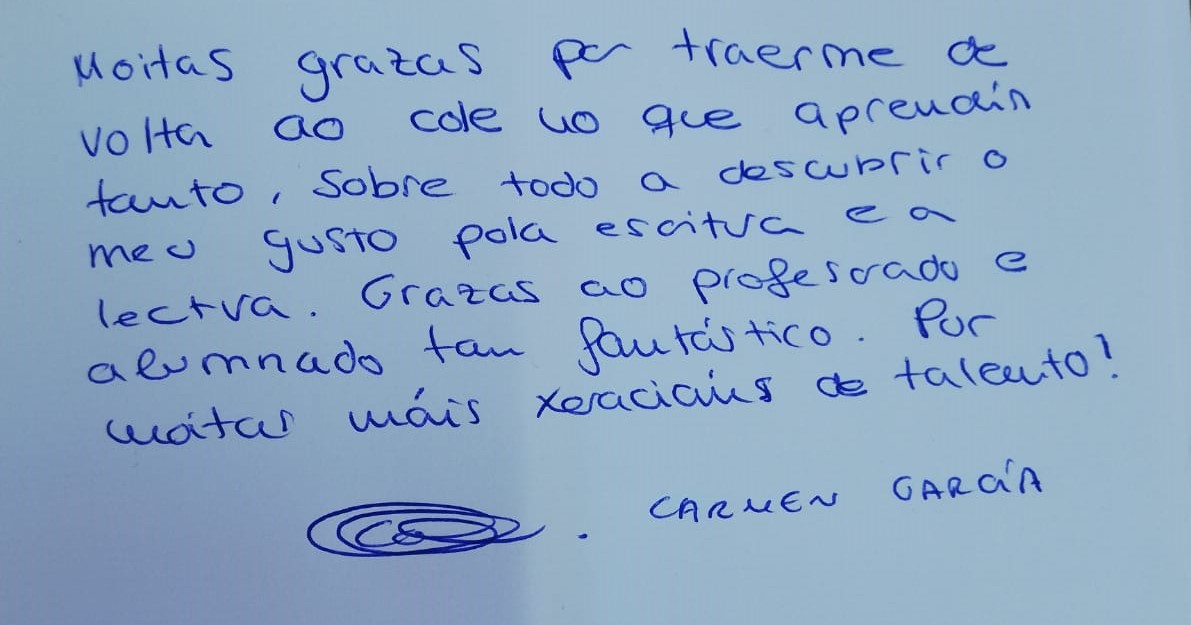 Moitas grazas por traerme de
volta ao cole no que aprendín
tanto, sobre todo a descubrir o
meu gusto pola escritura e a
lectura. Grazas ao profesorado e
alumnado tan fantástico. Por
moitas máis xeracións de talento!
CARMEN GARCÍA